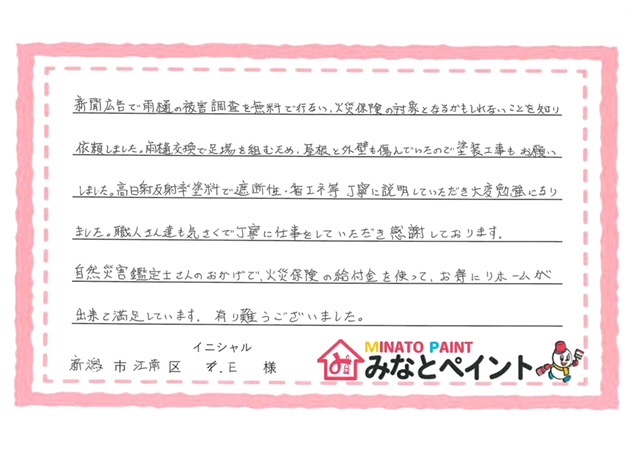 新聞広告で雨樋の被害調査を無料で行ない、火災保険の対象となるかもしれないことを知り
依頼しました。雨樋交換で足場を組むため、屋根と外壁も傷んでいたので塗装工事もお願い
しました。高日射反射率塗料で遮断性・省エネ等 丁寧に説明していただき大変勉強になり
ました。職人さん達も気さくで丁寧に仕事をしていただき感謝しております。
自然災害鑑定士さんのおかげで、火災保険の給付金を使って、お得にリホームが
出来て満足しています。有り難うございました。
イニシャル
新潟市江南区 .E 様
MINATO PAINT
みなとペイント